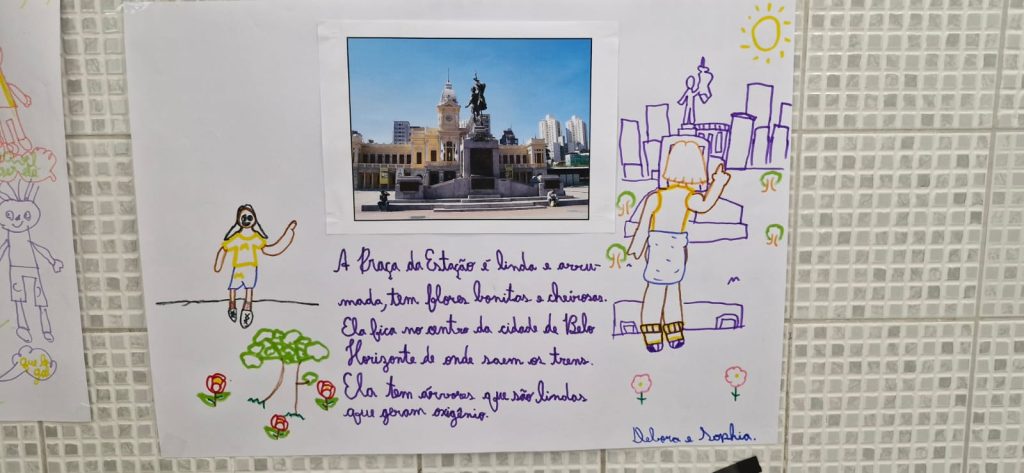 A Praça da Estação é linda e arru-
mada, tem flores bonitas e cheirosas.
Ela fica no centro da cidade de Belo
Horizonte de onde saem os trens.
Ela tem árvores que são lindas
que geram oxigênio.
Debora e Sophia.